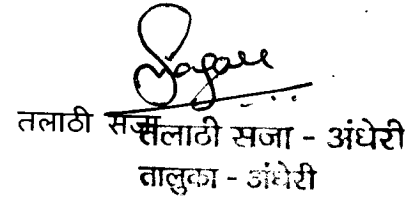 तलाठी सजा तलाठी सजा - अंधेरी
तालुका - अंधेरी